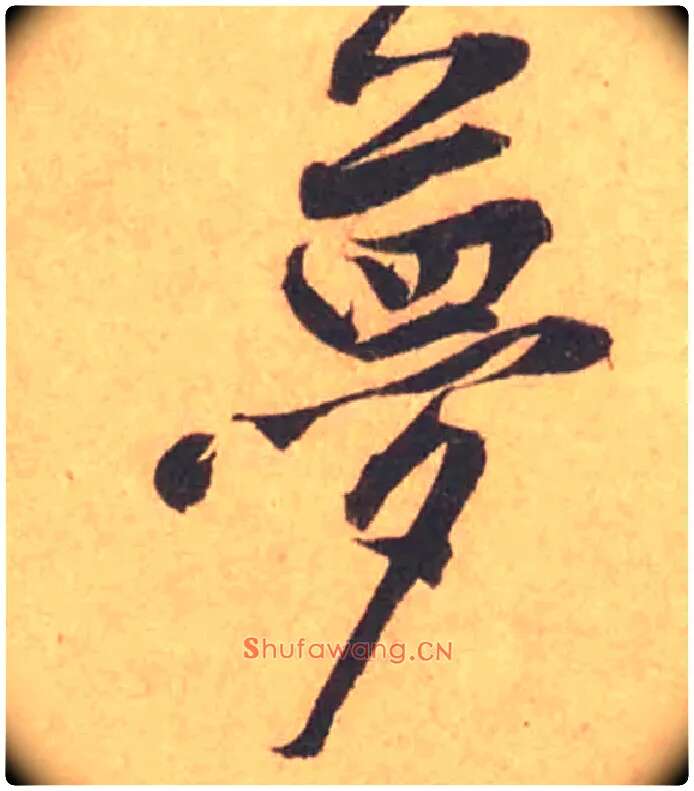 夢
Shufawang.CN